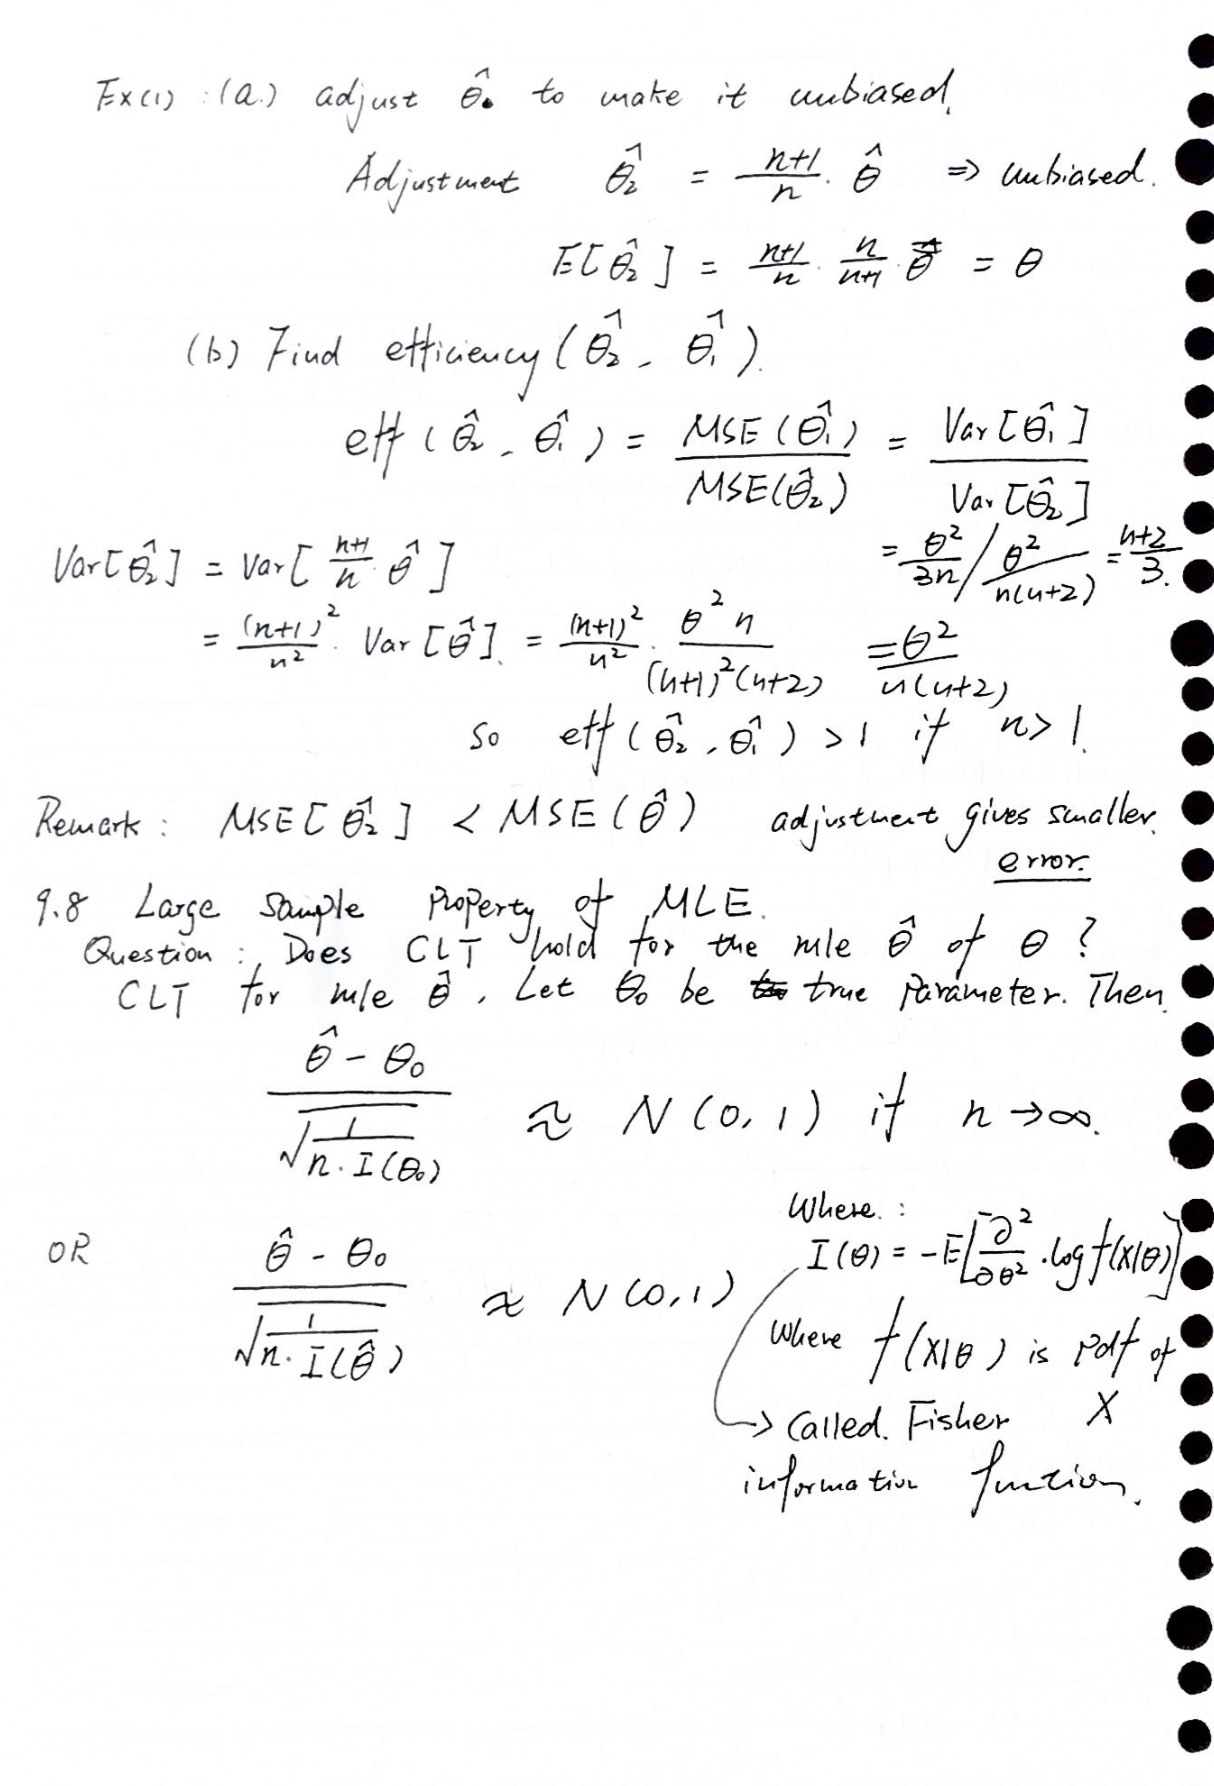 Ex(1) : (a.) adjust θ̂. to make it unbiased.
Adjustment θ̂₂ = (n+1)/n · θ̂ ⇒ unbiased.
E[θ̂₂] = (n+1)/n · n/(n+1) · θ = θ
(b) Find efficiency (θ̂₂, θ̂₁).
eff (θ̂₂, θ̂₁) = MSE(θ̂₁)/MSE(θ̂₂) = Var[θ̂₁]/Var[θ̂₂]
= θ²/3n / θ²/n(n+2) = (n+2)/3.
Var[θ̂₂] = Var[(n+1)/n · θ̂]
= (n+1)²/n² · Var[θ̂]. = (n+1)²/n² · θ²n/(n+1)²(n+2) = θ²/n(n+2)
So eff(θ̂₂, θ̂₁) > 1 if n > 1.
Remark : MSE[θ̂₂] < MSE(θ̂) adjustment gives smaller.
error.
9.8 Large Sample Property of MLE.
Question : Does CLT hold for the mle θ̂ of θ ?
CLT for mle θ̂. Let θ₀ be true Parameter. Then.
(θ̂ - θ₀)/√(1/(n·I(θ₀))) ≈ N(0,1) if n→∞.
OR (θ̂ - θ₀)/√(1/(n·I(θ̂))) ≈ N(0,1)
Where. :
I(θ) = -E[∂²/∂θ² · log f(X|θ)]
Where f(X|θ) is Pdf of
X
→ Called. Fisher
information function.